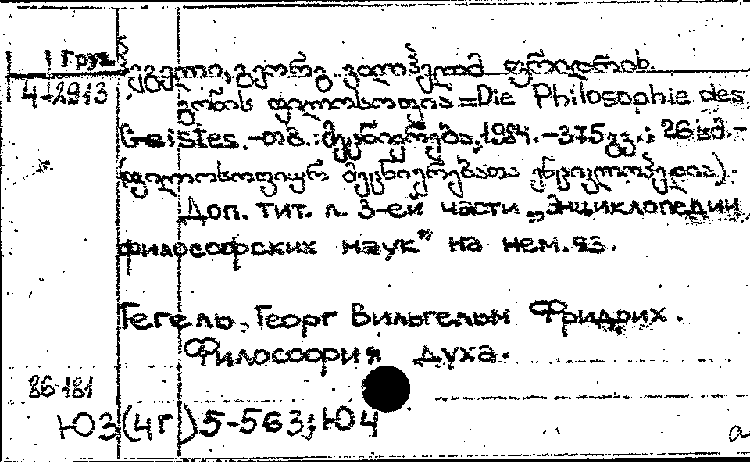 Груз.
4-2913
ჰეგელი, გეორგ ვილჰელმ ფრიდრიხ.
გონის ფილოსოფია = Die Philosophie des
Geistes. - თბ.: მეცნიერება, 1984. - 375 გვ.; 26 სმ. -
(ფილოსოფიურ მეცნიერებათა ენციკლოპედია).
Доп. тит. л. 3-ей части „Энциклопедии
философских наук" на нем. яз.
Гегель, Георг Вильгельм Фридрих.
Философия духа.
86-181
ЮЗ(4Г)5-563; Ю4
а